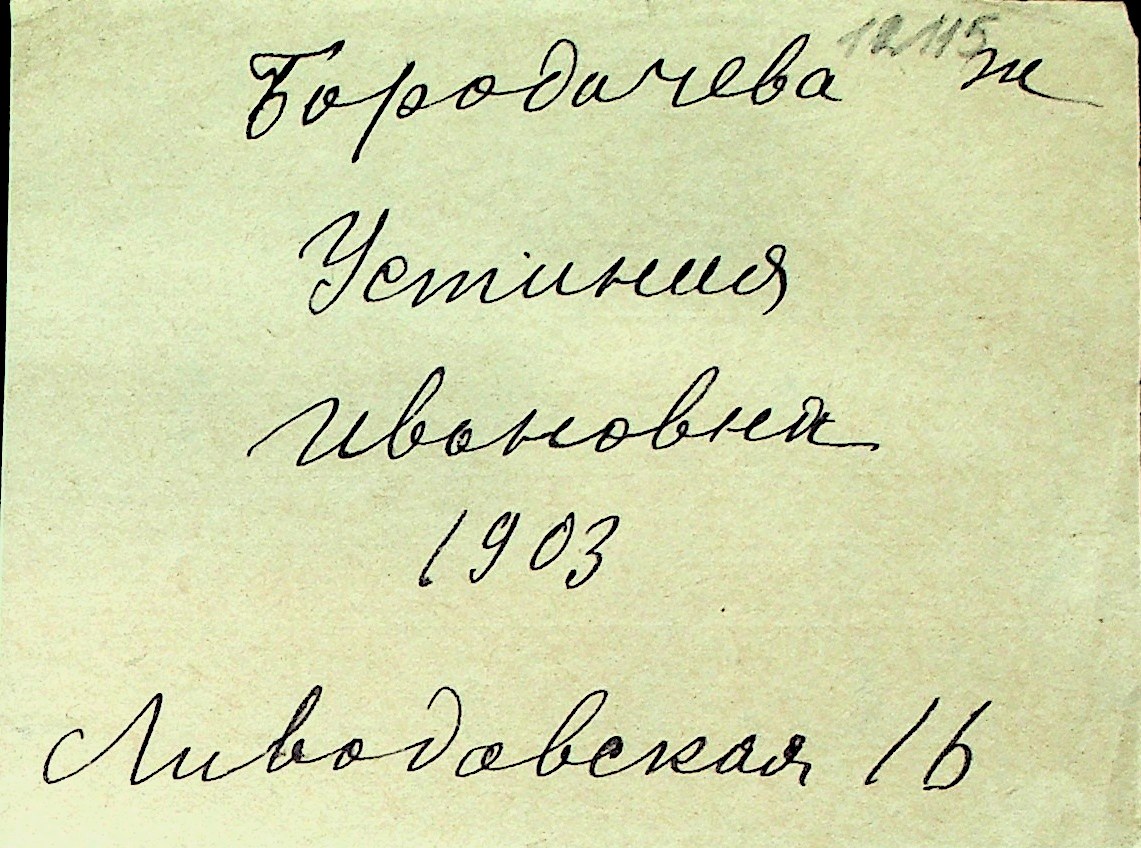 12115
Бородачева ж
Устиния
Ивановна
1903
Ливодовская 16